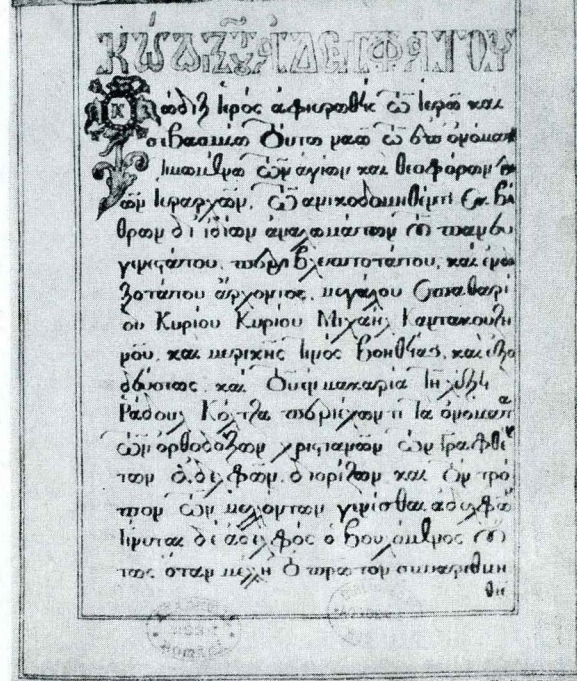 ΚΩΔΙΞ ΤΟΥ ΑΔΕΛΦΑΤΟΥ
Κώδιξ Ιερός ἀφιερωθεὶς τῷ Ιερῷ και
σεβασμίῳ τούτῳ ναῷ τῷ ἐπ' ὀνόματι
τιμωμένῳ τῶν ἁγίων και θεοφόρων
τῶν Ιεραρχῶν, τῷ ανικοδομηθέντι ἐκ βά
θρων δι ιδίων ἀναλωμάτων τοῦ πανευ
γενεστάτου, περιβλεπτοτάτου, και ἐνδο
ξοτάτου ἄρχοντος, μεγάλου Σπαθαρί
ου Κυρίου Κυρίου Μιχαήλ Καντακουζη
νοῦ, και μερικῆς τινος βοηθείας, και ἐξο
δεύσεως και τοῦ ἐν μακαρίᾳ τῇ λήξει
Ράδουλ περιέχων τε τα ὀνόματα
τῶν ὀρθοδόξων χριστιανῶν τῶν γραφθέν
των ἀδελφῶν, διορίζων και τὸν τρό
πον τῶν μελλόντων γενέσθαι ἀδελφῶν
Γίνεται δὲ ἀδελφός ὁ βουλόμενος οὕ
τως ὅταν μέλλῃ ὁ συναριθμη
θῆ